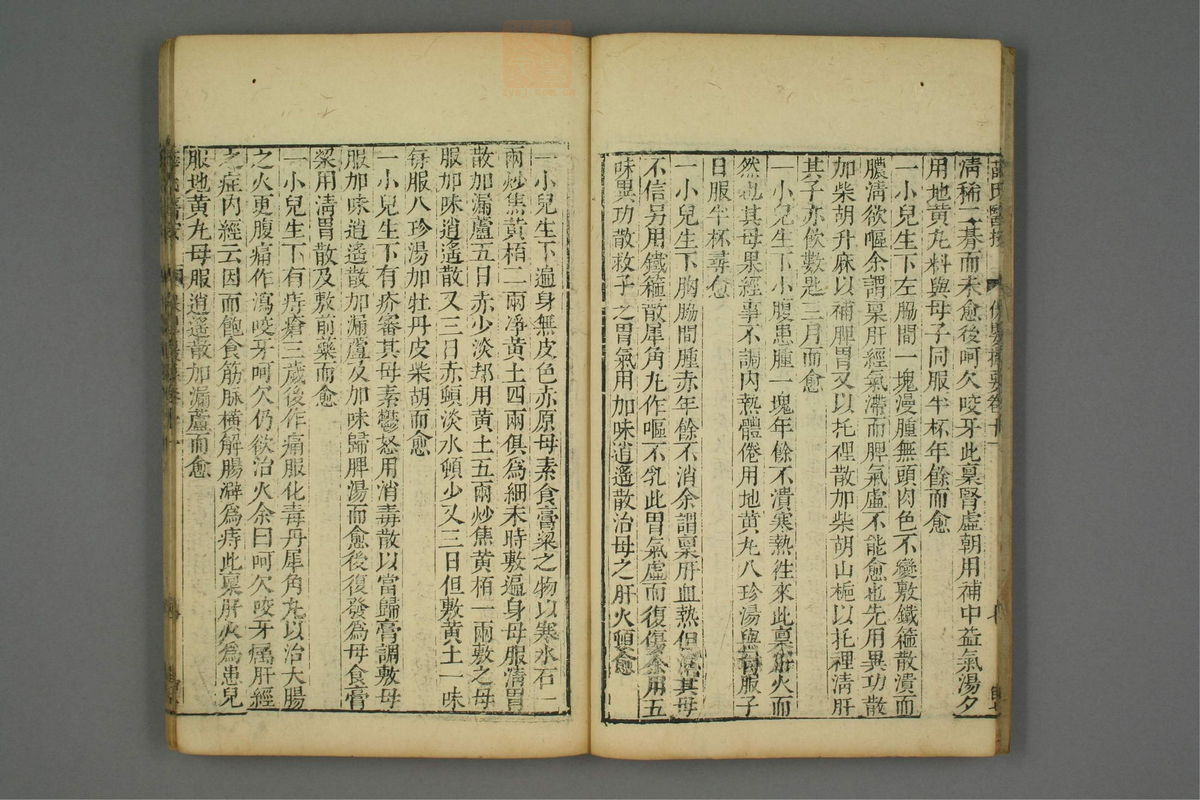 薛氏醫按 保嬰撮要卷
清稀一碁而未愈後呵欠咬牙此稟腎虛朝用補中益氣湯夕
用地黃丸料與母子同服半杯年餘而愈
一小兒生下左脇間一塊漫腫無頭肉色不變敷鐵箍散潰而
膿淸欲嘔余謂稟肝經氣滯而脾氣虛不能愈也先用異功散
加柴胡升麻以補脾胃又以托裡散加柴胡山梔以托裡淸肝
其子亦飲數匙三月而愈
一小兒生下小腹患腫一塊年餘不潰寒熱徃來此稟肝火而
然也其母果經事不調內熱體倦用地黃丸八珍湯與母服子
日服半杯尋愈
一小兒生下胸脇間腫赤年餘不消余謂稟肝血熱但淸其母
不信另用鐵箍散犀角丸作嘔不乳此胃氣虛而復傷余用五
味異功散救子之胃氣用加味逍遙散治母之肝火頓愈
一小兒生下遍身無皮色赤原母素食膏粱之物以寒水石二
兩炒焦黃栢二兩淨黃土四兩俱爲細末時敷遍身母服淸胃
散加漏蘆五日赤少淡却用黃土五兩炒焦黃栢一兩敷之母
服加味逍遙散又三日赤頓淡水頓少又三日但敷黃土一味
每服八珍湯加牡丹皮柴胡而愈
一小兒生下有疥審其母素鬱怒用消毒散以當歸膏調敷母
服加味逍遙散加漏蘆及加味歸脾湯而愈後復發爲母食膏
粱用淸胃散及敷前藥而愈
一小兒生下有痔瘡三歲後作痛服化毒丹犀角丸以治大腸
之火更腹痛作瀉咬牙呵欠仍欲治火余曰呵欠咬牙屬肝經
之症內經云因而飽食筋脉橫解腸澼爲痔此稟肝火爲患兒
服地黃丸母服逍遙散加漏蘆而愈